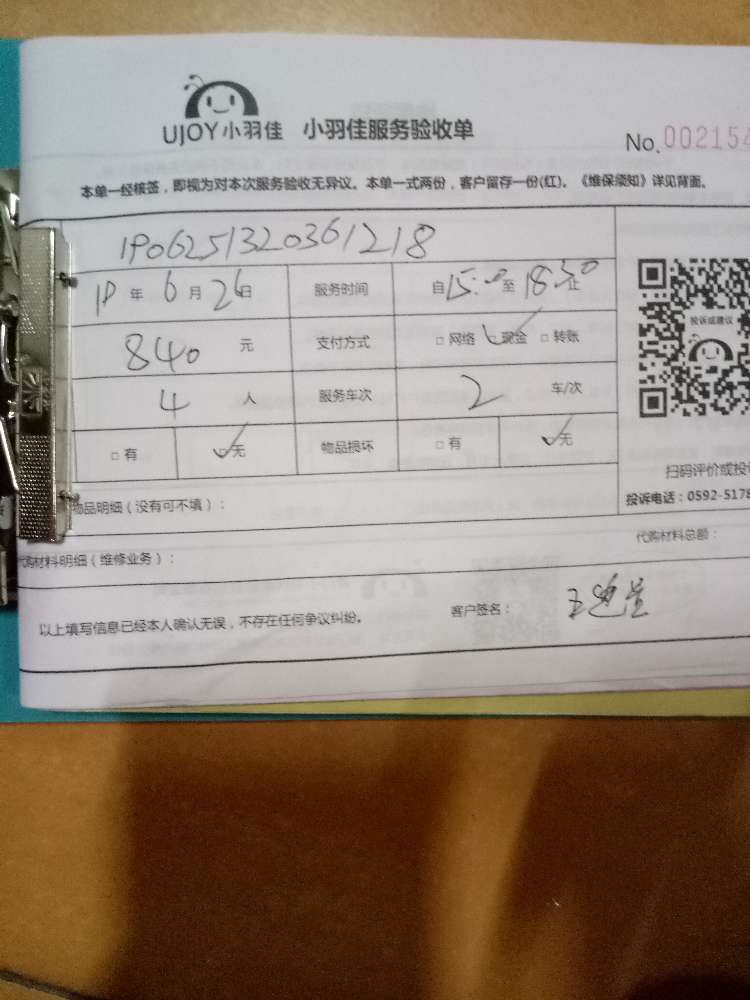 UJOY小羽佳 小羽佳服务验收单
No. 002154
本单一经核签，即视为对本次服务验收无异议。本单一式两份，客户留存一份(红)。《维保须知》详见背面。
1906251320361218
19年6月26日 服务时间 自15:00至18:30止
840元 支付方式 □网络 ☑现金 □转账
4人 服务车次 2车/次
□有 ☑无 物品损坏 □有 ☑无
投诉或建议
扫码评价或投
投诉电话：0592-5178
物品明细（没有可不填）：
代购材料明细（维修业务）：
代购材料总额：
以上填写信息已经本人确认无误，不存在任何争议纠纷。 客户签名：